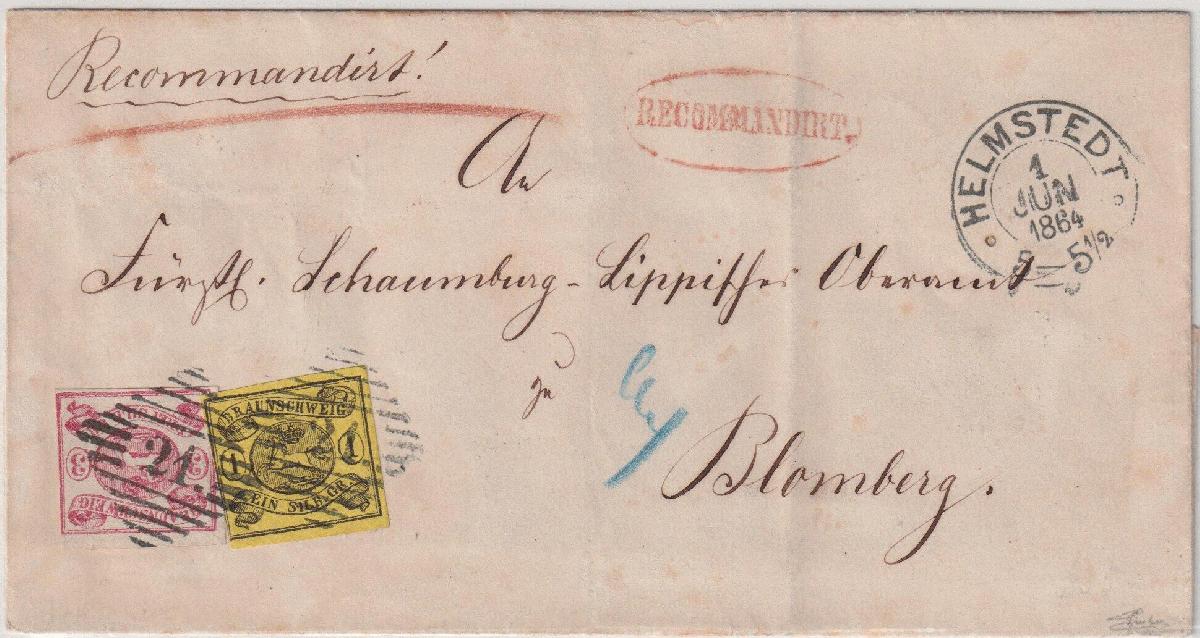 Recommandirt!
RECOMMANDIRT.
HELMSTEDT
1
JUN
1864
5½
An
Fürstl. Schaumburg-Lippisches Oberamt
zu
Blomberg.
3 3
21.
BRAUNSCHWEIG
1 1
EIN SILB.GR.